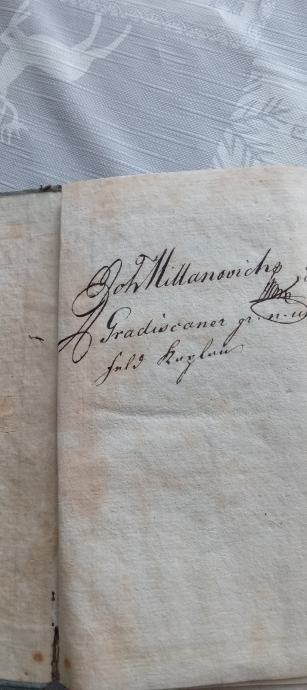 Joh Millanovich
Gradiscaner gr. n. u
feld Kaplan